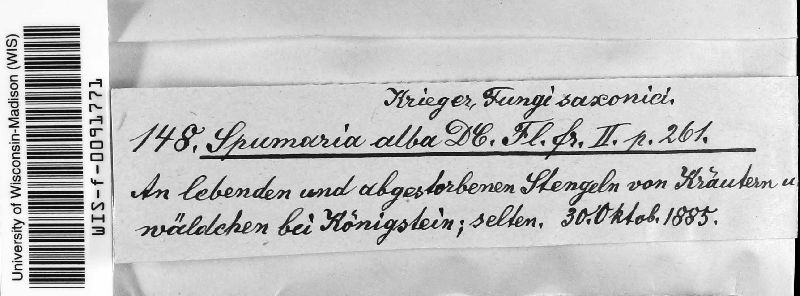 University of Wisconsin-Madison (WIS)
WIS-f-0091771
Krieger, Fungi saxonici.
148. Spumaria alba DC. Fl. fr. II. p. 261.
An lebenden und abgestorbenen Stengeln von Kräutern u
wäldchen bei Königstein; selten. 30. Oktob. 1885.